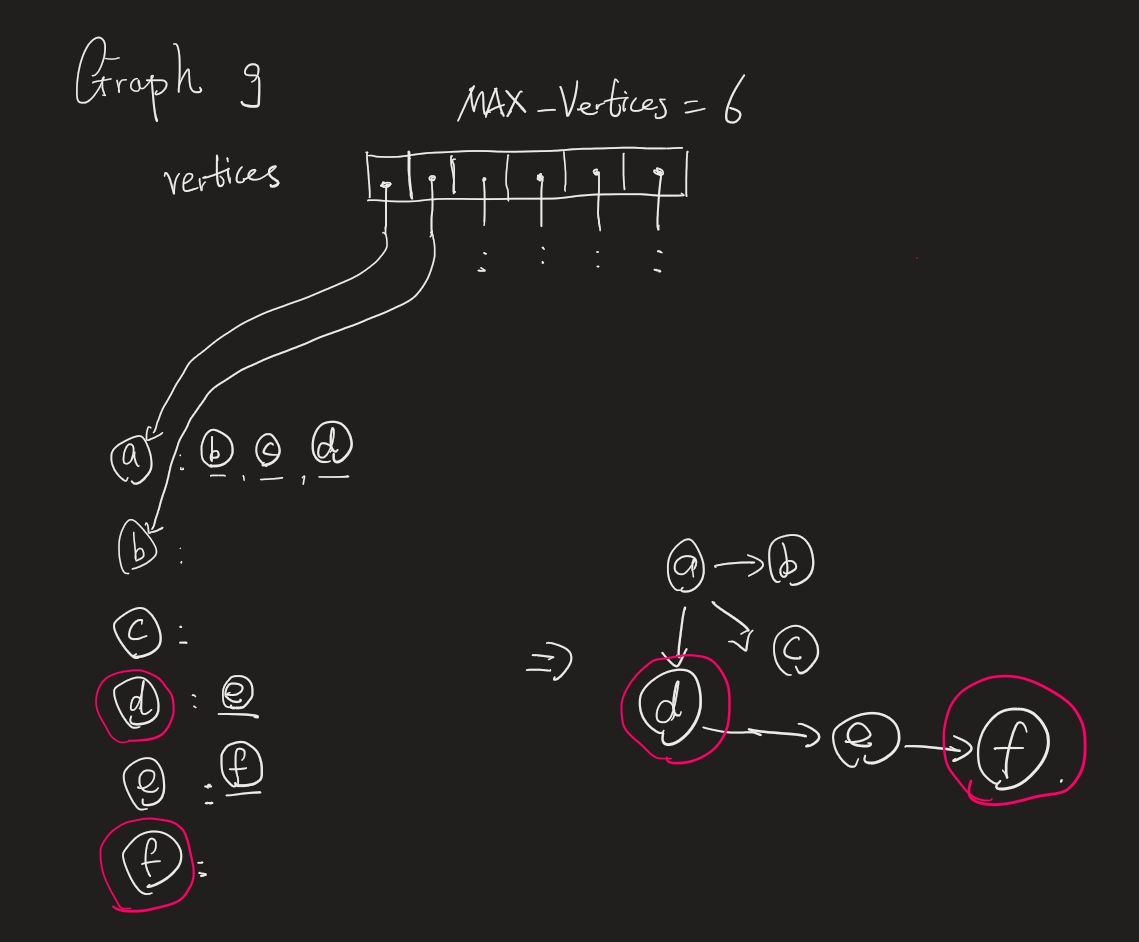 Graph g
MAX_Vertices = 6
vertices
a : b , c , d
b :
c :
d : e
e : f
f :
a → b
c
⇒
d → e → f